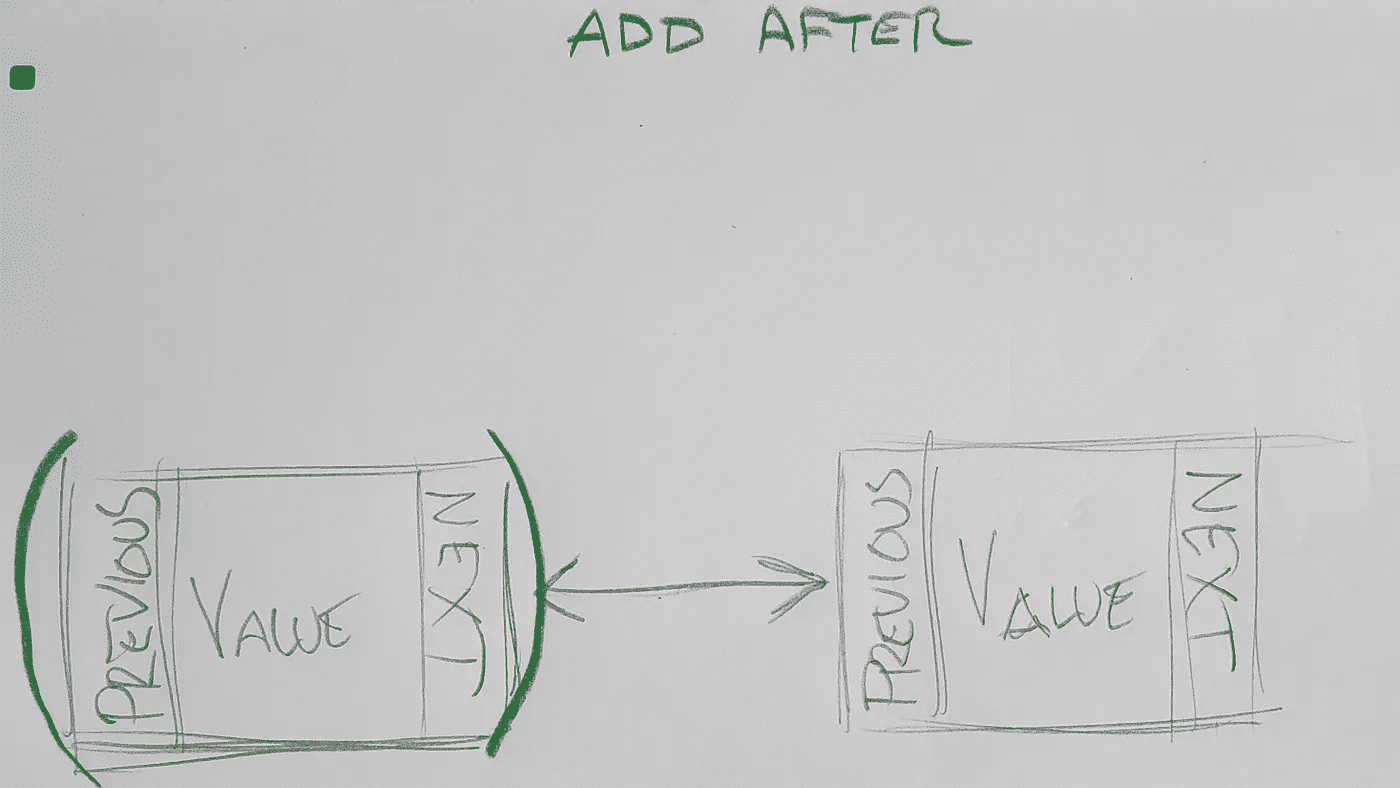 ADD AFTER
PREVIOUS
VALUE
NEXT
PREVIOUS
VALUE
NEXT